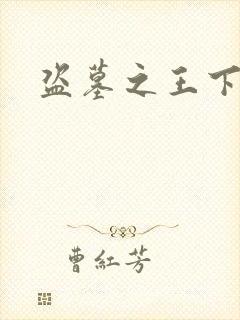 盗墓之王下
曹紅芳